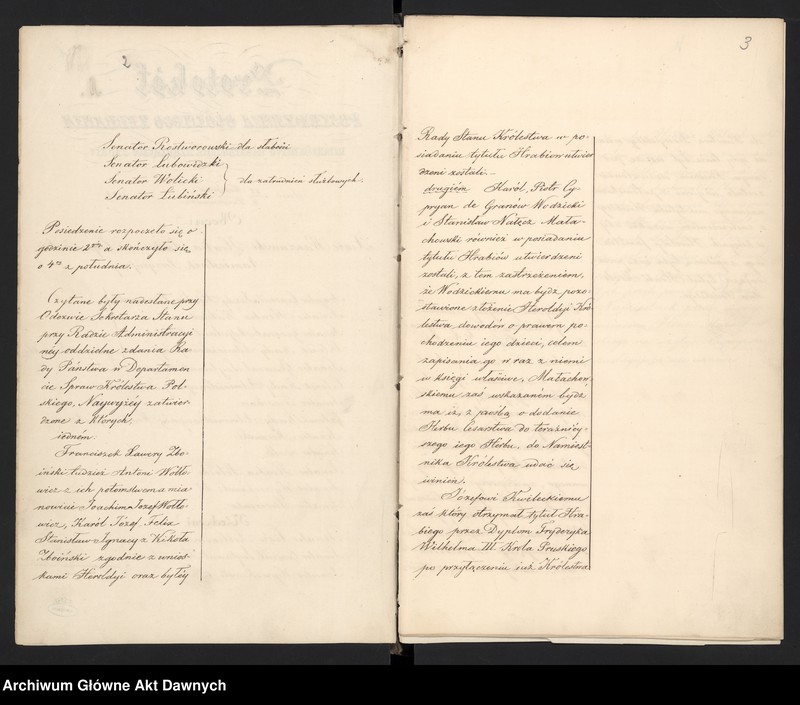 2
Senator Rostworowski dla słabości
Senator Lubowidzki
Senator Wolicki
dla zatrudnień służbowych.
Senator Łubiński
Posiedzenie rozpoczęło się o
godzinie 2giej a skończyło się
o 4ej z południa.
Czytane były nadesłane przy
Odezwie Sekretarza Stanu
przy Radzie Administracyi
néy oddzielne zdania Ra
dy Państwa w Departamen
cie Spraw Królestwa Pol
skiego, Naywyżéy zatwier
dzone z których.
iedném.
Franciszek Xawery Zbo
iński tudzież Antoni Wołło
wicz z ich potomstwem a mia
nowicie Joachim Józef Wołło
wicz, Karól Józef, Felix
Stanisław Ignacy z Kikoła
Zboiński zgodnie z wnios
kami Heroldyi oraz byłéy
3
Rady Stanu Królestwa w po
siadaniu tytułu Hrabiów utwier
dzeni zostali.
drugiém Karól, Piotr Cy
pryan de Granów Wodzicki
i Stanisław Nałęcz Mała
chowski również w posiadaniu
tytułu Hrabiów utwierdzeni
zostali, z tem zastrzeżeniem,
że Wodzickiemu ma bydź pozo
stawione złożenie Heroldyi Kró
lestwa dowodów o prawem po
chodzeniu iego dzieci, celem
zapisania go wraz z niemi
w księgi właściwe, Małachow
skiemu zaś wskazanem bydź
ma iż, z prośbą o dodanie
Herbu Cesarstwa do teraźniéy
szego iego Herbu, do Namiest
nika Królestwa udać się
winien.
Józefowi Kwileckiemu
zaś który otrzymał tytuł Hra
biego przez Dyplom Fryderyka
Wilhelma III Króla Pruskiego
po przyłączeniu iuż Królestwa
Archiwum Główne Akt Dawnych